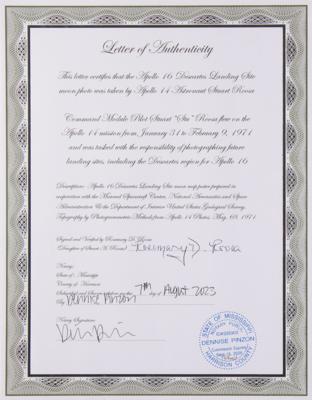 Letter of Authenticity
This letter certifies that the Apollo 16 Descartes Landing Site
moon photo was taken by Apollo 14 Astronaut Stuart Roosa
Command Module Pilot Stuart "Stu" Roosa flew on the
Apollo 14 mission from January 31 to February 9, 1971
and was tasked with the responsibility of photographing future
landing sites, including the Descartes region for Apollo 16
Description: Apollo 16 Descartes Landing Site moon map poster prepared in
cooperation with the Manned Spacecraft Center, National Aeronautics and Space
Administration & the Department of Interior United States Geological Survey,
Topography by Photogrammetric Methods from Apollo 14 Photos, May, 1971
Signed and Verified by Rosemary D. Roosa
(Daughter of Stuart A. Roosa) Rosemary D. Roosa
Notary:
State of Mississippi
County of Harrison
Subscribed and Sworn before me this 7th day of August 2023
by DENNISE PINZON
Notary Signature:
STATE OF MISSISSIPPI
NOTARY PUBLIC
DENNISE PINZON
Commission Expires
HARRISON COUNTY